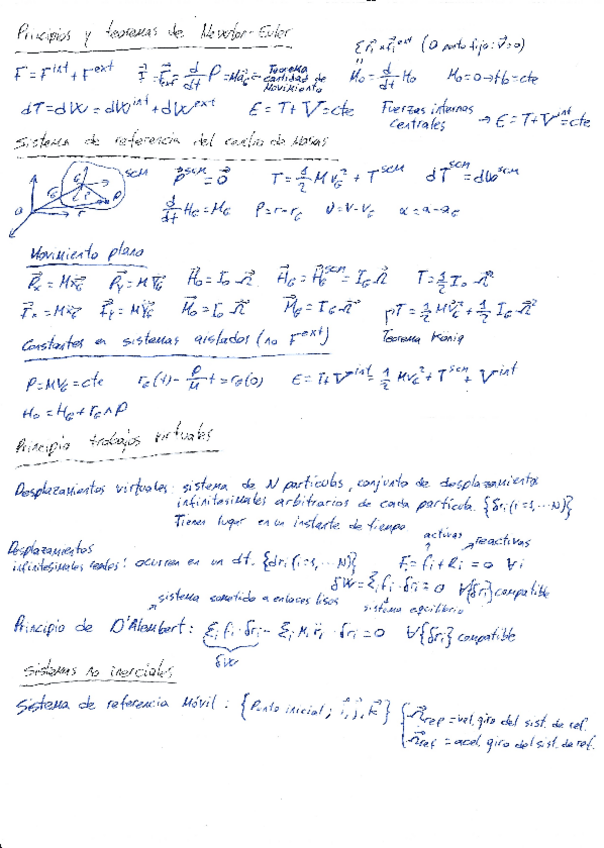 Principios y teoremas de Newton-Euler
Σ r⃗ᵢ∧r⃗ᵢᵉˣᵗ (O punto fijo: v⃗=0)
F = Fⁱⁿᵗ + Fᵉˣᵗ F⃗ = F⃗ₑₓₜ = d/dt P = M a_G → Teorema cantidad de Movimiento M₀ = d/dt H₀ M₀ = 0 → H₀ = cte
dT = dW = dWⁱⁿᵗ + dWᵉˣᵗ E = T + V = cte Fuerzas internas centrales → E = T + Vⁱⁿᵗ = cte
Sistema de referencia del centro de Masas
SCM P⃗ˢᶜᴹ = 0⃗ T = 1/2 M v_G² + Tˢᶜᴹ dTˢᶜᴹ = dWˢᶜᴹ
d/dt H_G = M_G ρ = r - r_G v = v - v_G α = a - a_G
Movimiento plano
P⃗ₓ = M ẋ_G P⃗ᵧ = M Ẏ_G H⃗₀ = I₀ Ω⃗ H⃗_G = H⃗_Gˢᶜᴹ = I_G Ω⃗ T = 1/2 I₀ Ω²
F⃗ₓ = M ẍ_G F⃗ᵧ = M Ÿ_G M⃗₀ = I₀ Ω⃗ M⃗_G = I_G Ω⃗ T = 1/2 M v_G² + 1/2 I_G Ω²
Constantes en sistemas aislados (no Fᵉˣᵗ) Teorema König
P = M v_G = cte r_G(t) - P/M t = r_G(0) E = T + Vⁱⁿᵗ = 1/2 M v_G² + Tˢᶜᴹ + Vⁱⁿᵗ
H₀ = H_G + r_G ∧ P
Principio trabajos virtuales
Desplazamientos virtuales: sistema de N partículas, conjunto de desplazamientos
infinitesimales arbitrarios de cada partícula. {δrᵢ (i=1,...N)}
Tienen lugar en un instante de tiempo
activas reactivas
Desplazamientos
infinitesimales reales: ocurren en un dt. {drᵢ (i=1,...N)} Fᵢ = fᵢ + Rᵢ = 0 ∀i
δW = Σᵢ fᵢ · δrᵢ = 0 ∀{δrᵢ} compatible
sistema sometido a enlaces lisos sistema equilibrio
Principio de D'Alembert: Σᵢ fᵢ · δrᵢ - Σᵢ Mᵢ r̈ᵢ · δrᵢ = 0 ∀{δrᵢ} compatible
δW
Sistemas no inerciales
Sistema de referencia Móvil: {Punto inicial; i⃗, j⃗, k⃗} { Ω⃗ref = vel. giro del sist. de ref.
Ω⃗ref = acel. giro del sist. de ref.